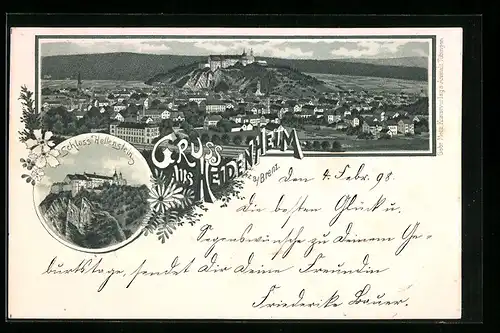 Schloss Hellenstein
GRUSS
AUS
HEIDENHEIM
a/Brenz.
den 4. Febr. 98.
Die besten Glück u.
Segenswünsche zu Deinem Ge-
burtstage, sendet Dir Deine Freundin
Friederike Bauer.